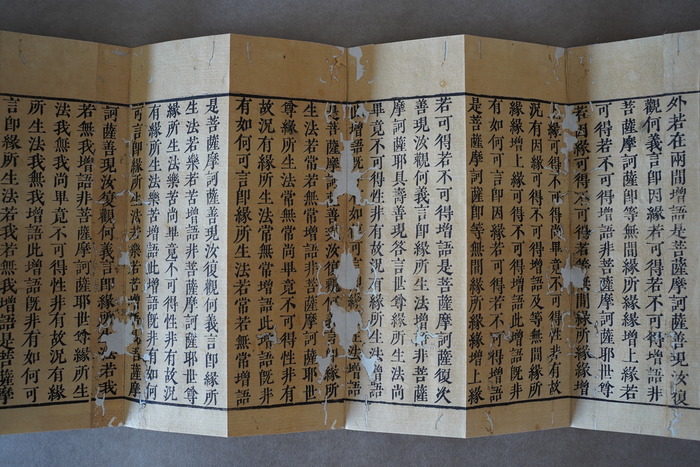 外若在兩間增語是菩薩摩訶薩善現汝復
觀何義言即因緣若可得若不可得增語非
菩薩摩訶薩即等無間緣所緣緣增上緣若
可得若不可得增語非菩薩摩訶薩耶世尊
若因緣可得不可得若等無間緣所緣緣增
上緣可得不可得尚畢竟不可得性非有故
況有因緣可得不可得增語及等無間緣所
緣緣增上緣可得不可得增語此增語既非
有如何可言即因緣若可得若不可得增語
是菩薩摩訶薩即等無間緣所緣緣增上緣
若可得若不可得增語是菩薩摩訶薩復次
善現汝觀何義言即緣所生法增語非菩薩
摩訶薩耶具壽善現答言世尊緣所生法尚
畢竟不可得性非有故況有緣所生法增語
此增語既如可生法增語
是菩薩摩訶薩善現汝復言即緣所
生法若常若無常增語非菩薩摩訶薩耶世
尊緣所生法常無常尚畢竟不可得性非有
故況有緣所生法常無常增語此增語既非
有如何可言即緣所生法若常若無常增語
是菩薩摩訶薩善現汝復觀何義言即緣所
生法若樂若苦增語非菩薩摩訶薩耶世尊
緣所生法樂苦尚畢竟不可得性非有故況
有緣所生法樂苦增語此增語既非有如何
可言即緣所生法若樂若苦增語菩薩摩
訶薩善現汝復觀何義言即緣所生法若我
若無我增語非菩薩摩訶薩耶世尊緣所生
法我無我尚畢竟不可得性非有故況有緣
所生法我無我增語此增語既非有如何可
言即緣所生法若我若無我增語是菩薩摩